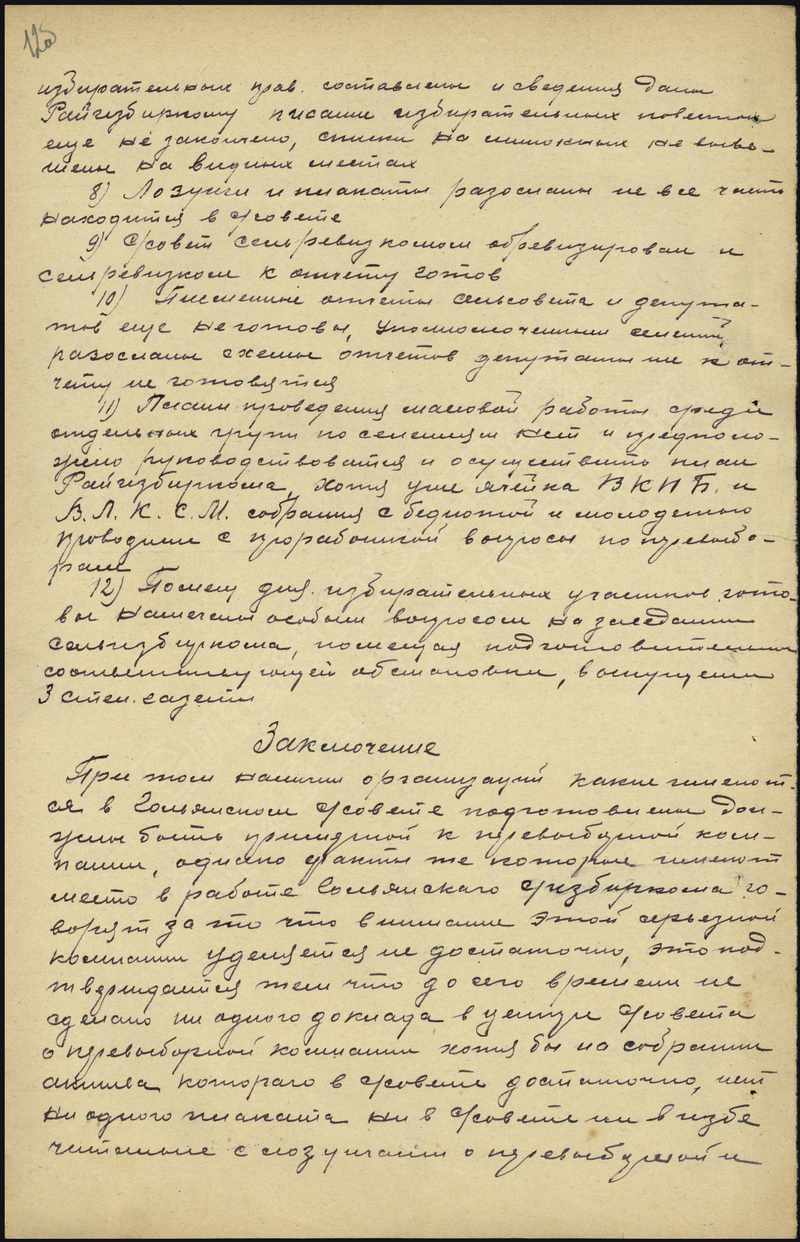 12а
избирательных прав. составлены и сведения даны
Райизбиркому писание избирательных повесток
еще не закончено, списки на лишонных не выве-
шены на видных местах
8) Лозунги и плакаты разосланы не все часть
находится в с/совете
9) С/совет сельревизкомом обревизирован и
сельревизком к отчету готов
10) Писменные отчеты сельсовета и депута-
тов еще не готовы, уполномоченным селений
разосланы схемы отчетов депутаты же к от-
чету не готовятся
11) Плана проведения массовой работы среди
отдельных групп по селениям нет и предполо-
жено руководствоватся и осуществить план
Райизбиркома, хотя уже ячейка В К П Б. и
В. Л. К. С. М. собрания с беднотой и молодежью
проводили с проработкой вопросы по перевыбо-
рам
12) Помещ для избирательных участков гото-
вы намечены особым вопросом на заседании
сельизбиркома, помещая подготовительными
соответствующей обстановки, выпущены
3 стен. газеты
Заключение
При том наличии организаций какие имеют-
ся в Гольянском с/совете подготовлены дол-
жны быть приличной к перевыборной ком-
пании, однако факты же которые имеют
место в работе Гольянскаго с/избиркома го-
ворят за то что внимание этой серьезной
компании уделяется не достаточно, это под-
тверждается тем что до сего времени не
сделано ни одного доклада в центре с/совета
о перевыборной компании хотя бы на собрании
актива котораго в с/совете достаточно, нет
ни одного плаката ни в с/совете ни в избе
читальне с лозунгами о перевыборной и